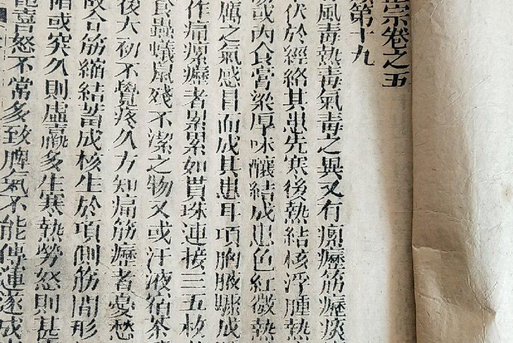 宗卷之五
第十九
風毒熱毒氣毒之異又有瘰癧筋癧痰
伏於經絡其患先寒後熱結核浮腫熱
或內食膏粱厚味釀結成患色紅微熱
厲之氣感冒而成其患耳項胸腋驟成
作痛瘰癧者累累如貫珠連接三五枚
食蟲蟻鼠殘不潔之物又或汗液宿茶
後大初不覺疼久方知痛筋癧者憂愁
故令筋縮結蓄成核生於項側筋間形
陷或突久則虛羸多生寒熱勞怒則甚
能喜怒不常多致脾氣不能傳運遂成